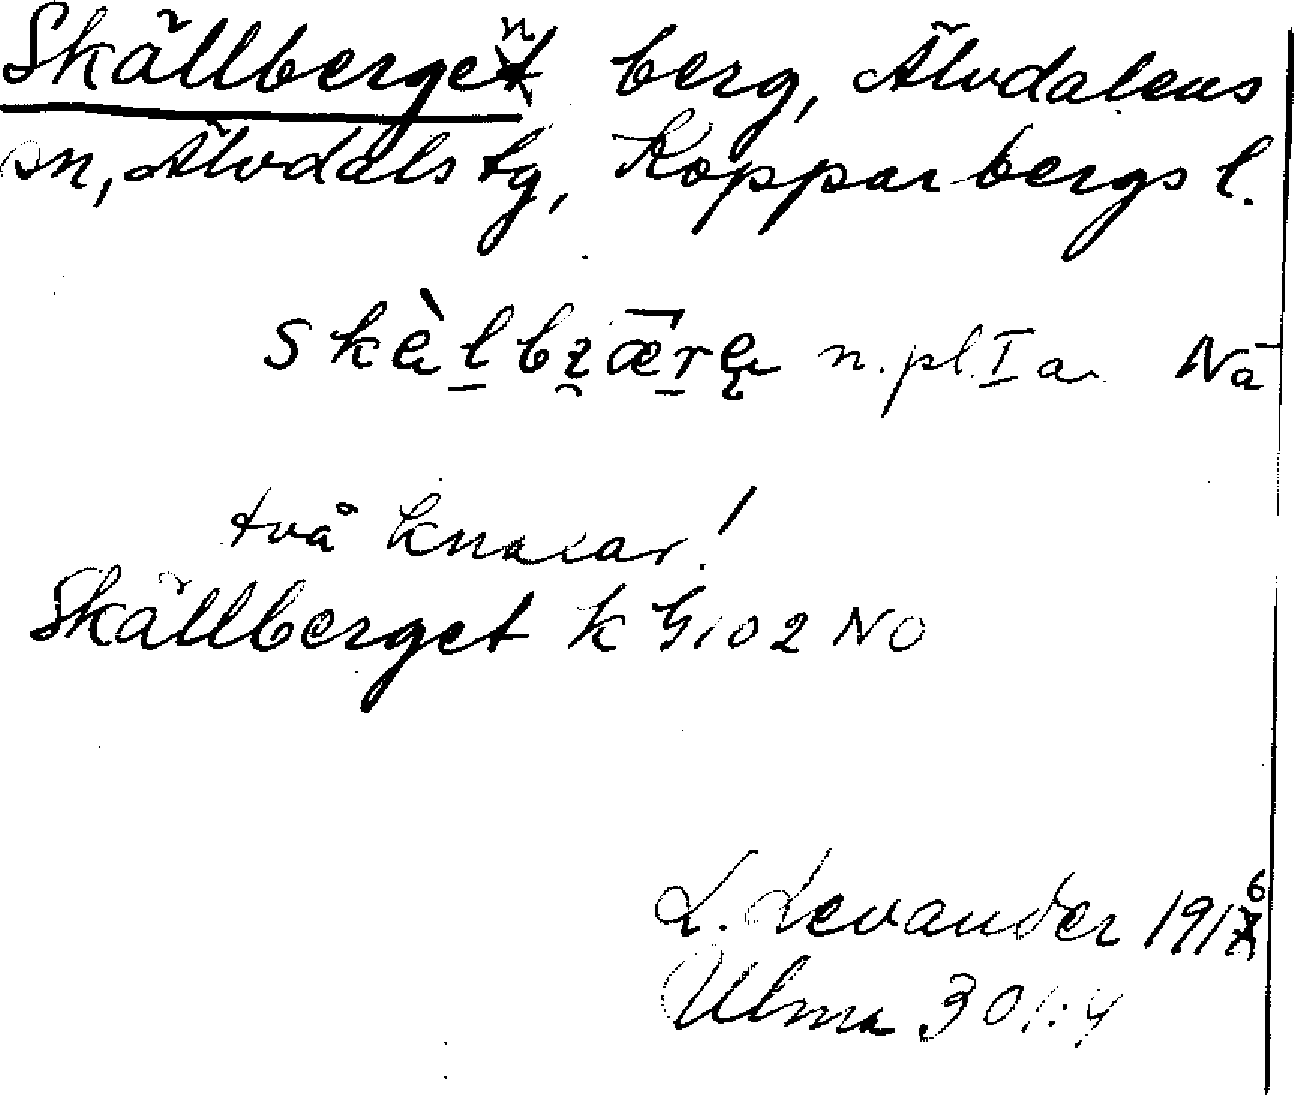 Skällbergen berg, Älvdalens
sn, Älvdals tg, Kopparbergs l.
n. pl. I a. Nä
två knaxar!
Skällberget k G 102 NO
L. Levander 1916
Ulma 301:4